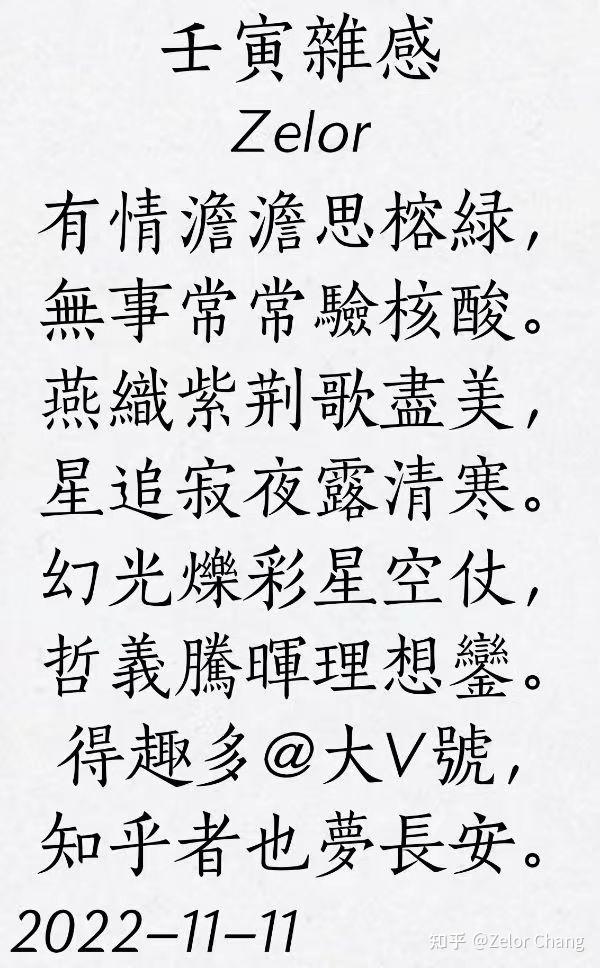 壬寅雜感
Zelor
有情澹澹思榕綠，
無事常常驗核酸。
燕織紫荆歌盡美，
星追寂夜露清寒。
幻光爍彩星空仗，
哲義騰暉理想鑾。
得趣多@大V號，
知乎者也夢長安。
2022-11-11
知乎 @Zelor Chang